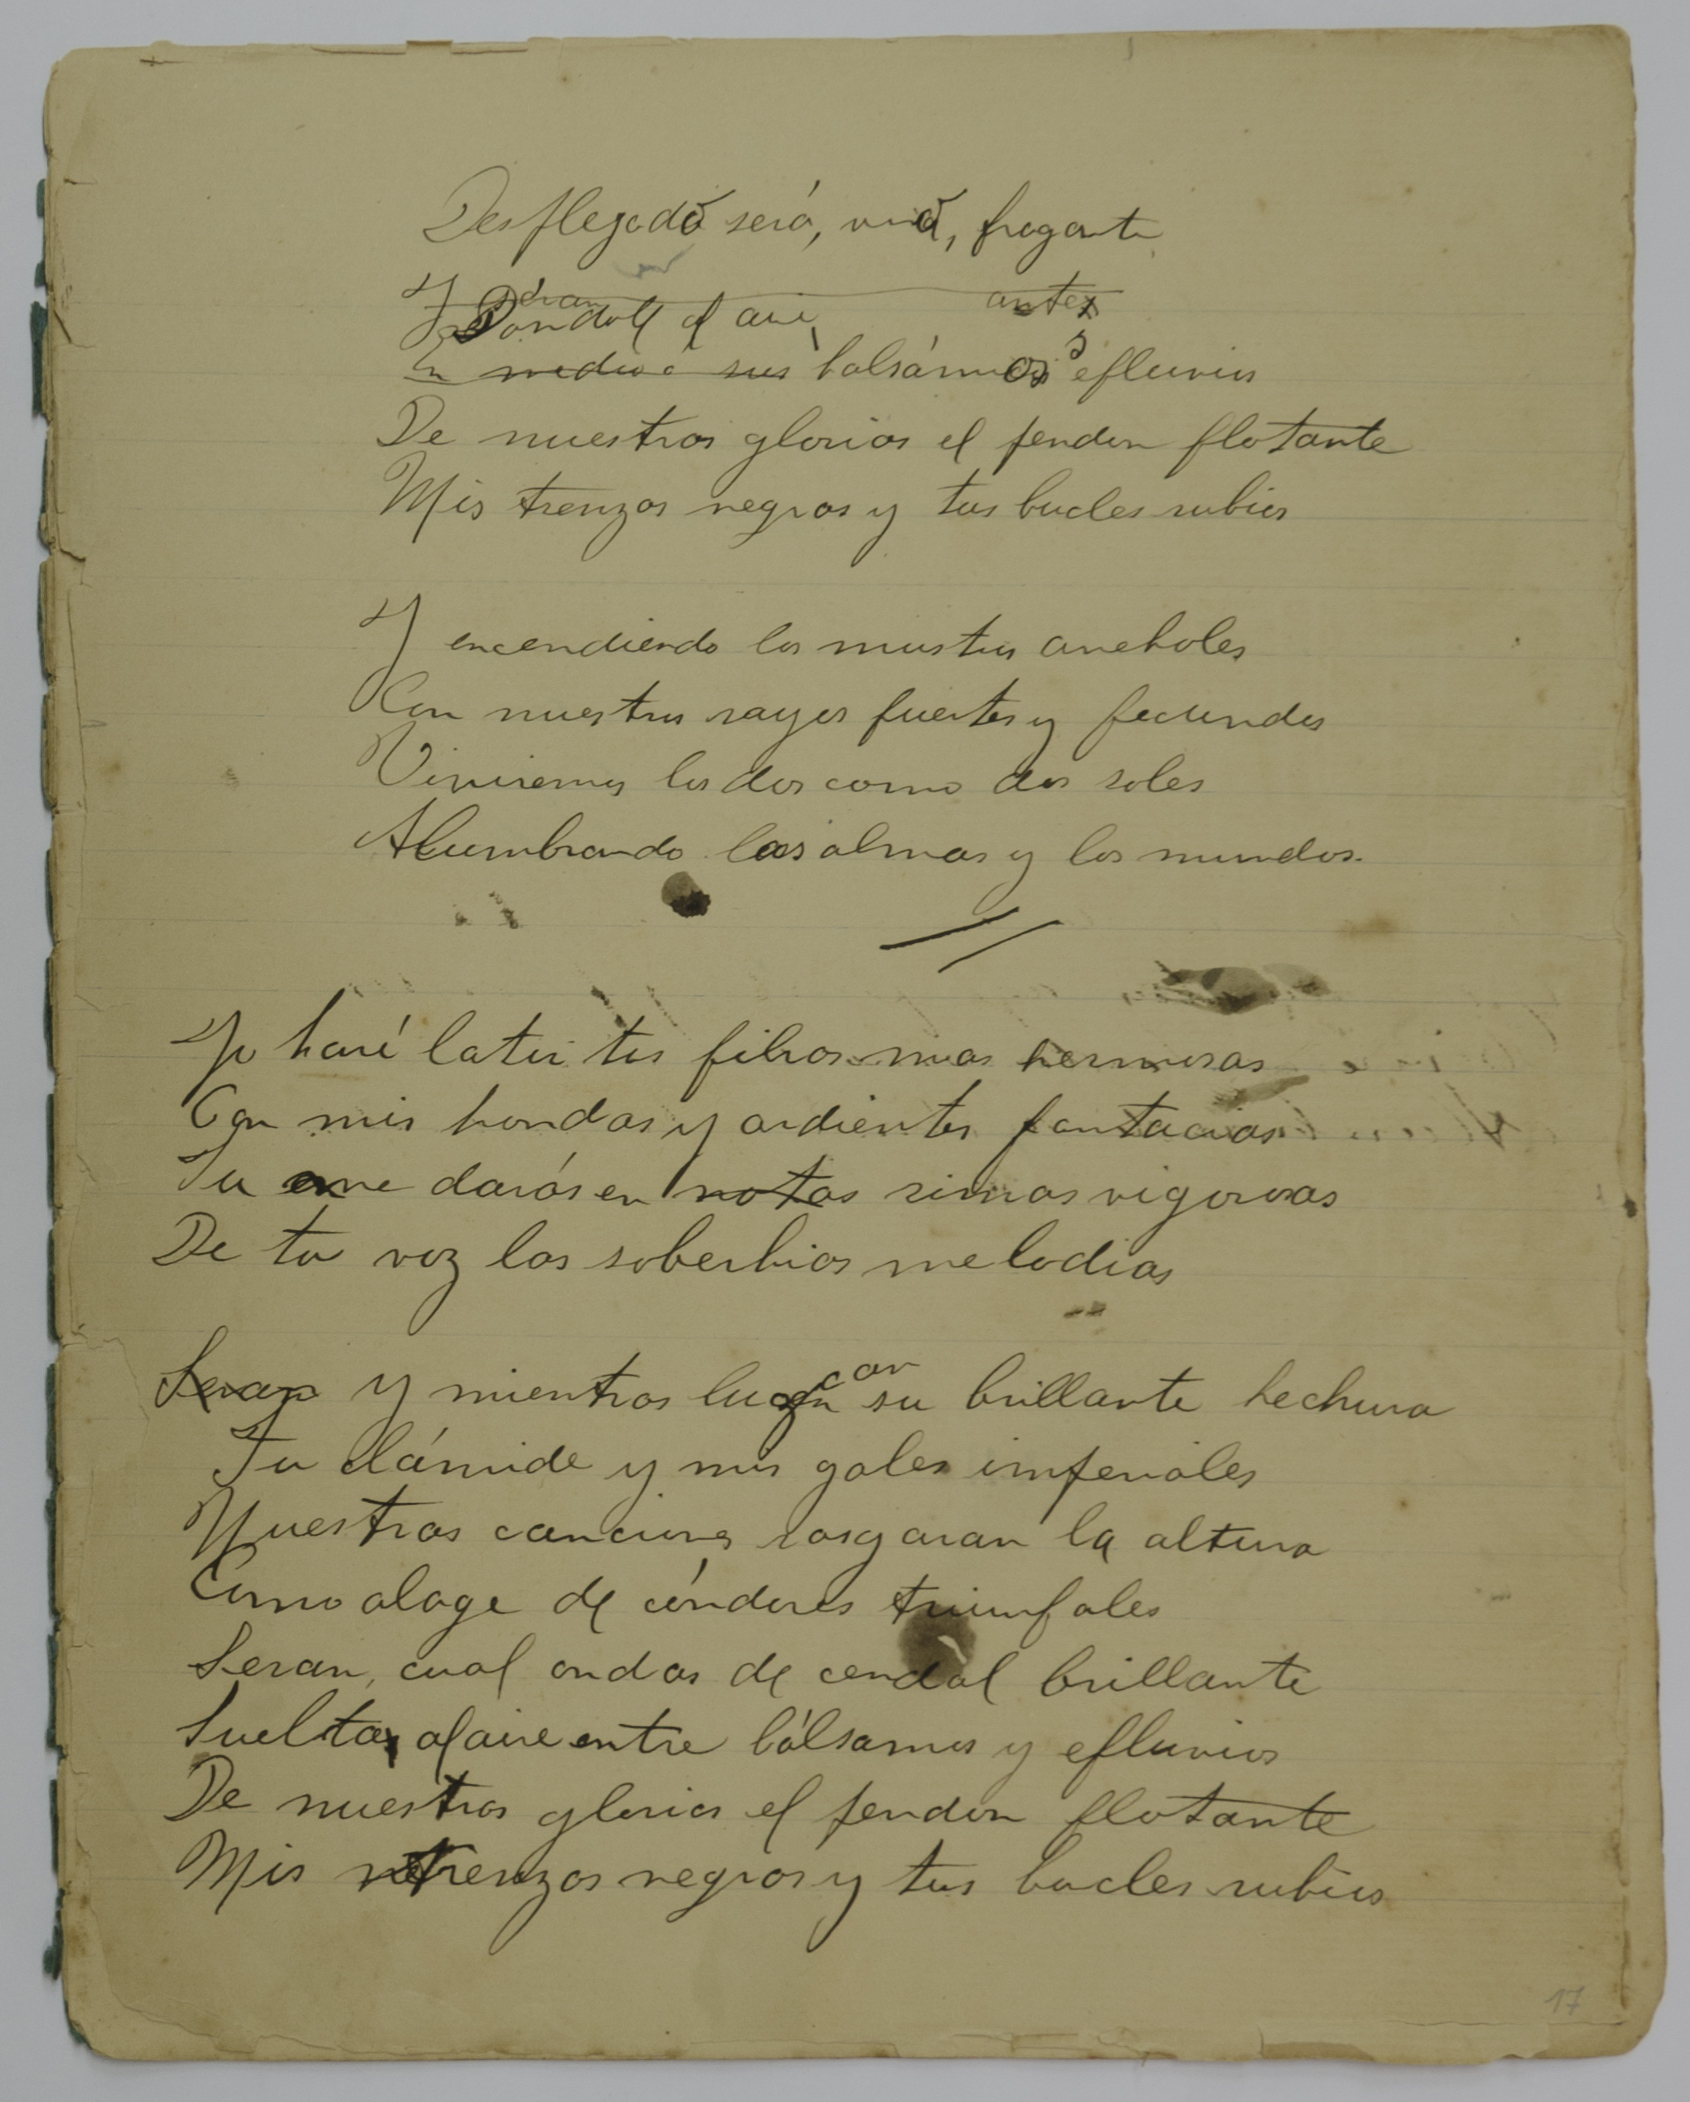 Desplegado será, vivo, fragante
Y Dandole al aire
En medio á sus balsámicos efluvios
De nuestras glorias el pendon flotante
Mis trenzas negras y tus bucles rubios
Y encendiendo los mustios arreboles
Con nuestros rayos fuertes y fecundos
Viviremos los dos como dos soles
Alumbrando las almas y los mundos.
Yo haré latir tus fibras mas hermosas
Con mis hondas y ardientes fantacias
Tu me darás en notas rimas vigorosas
De tu voz las soberbias melodias
Seran y mientras luzcan su brillante hechura
Tu clámide y mis galas imperiales
Nuestras canciones rasgaran la altura
Como alage de cóndores triumfales
Seran, cual ondas de cendal brillante
Sueltas al aire entre bálsamos y efluvios
De nuestras glorias el pendon flotante
Mis trenzas negras y tus bucles rubios
17